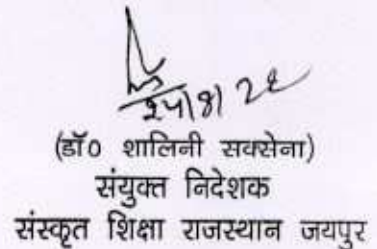 (डॉ0 शालिनी सक्सेना)
संयुक्त निदेशक
संस्कृत शिक्षा राजस्थान जयपुर